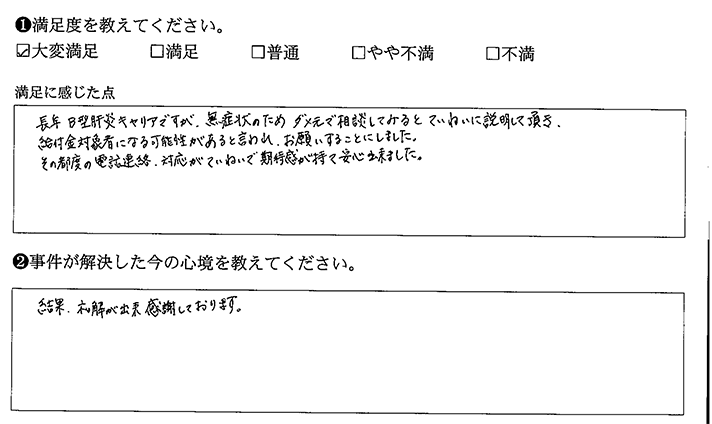 ❶満足度を教えてください。
☑大変満足 □満足 □普通 □やや不満 □不満
満足に感じた点
長年B型肝炎キャリアですが、無症状のためダメ元で相談してみるとていねいに説明して頂き、
給付金対象者になる可能性があると言われ、お願いすることにしました。
その都度の電話連絡、対応がていねいで期待感が持て安心出来ました。
❷事件が解決した今の心境を教えてください。
結果、和解が出来感謝しております。